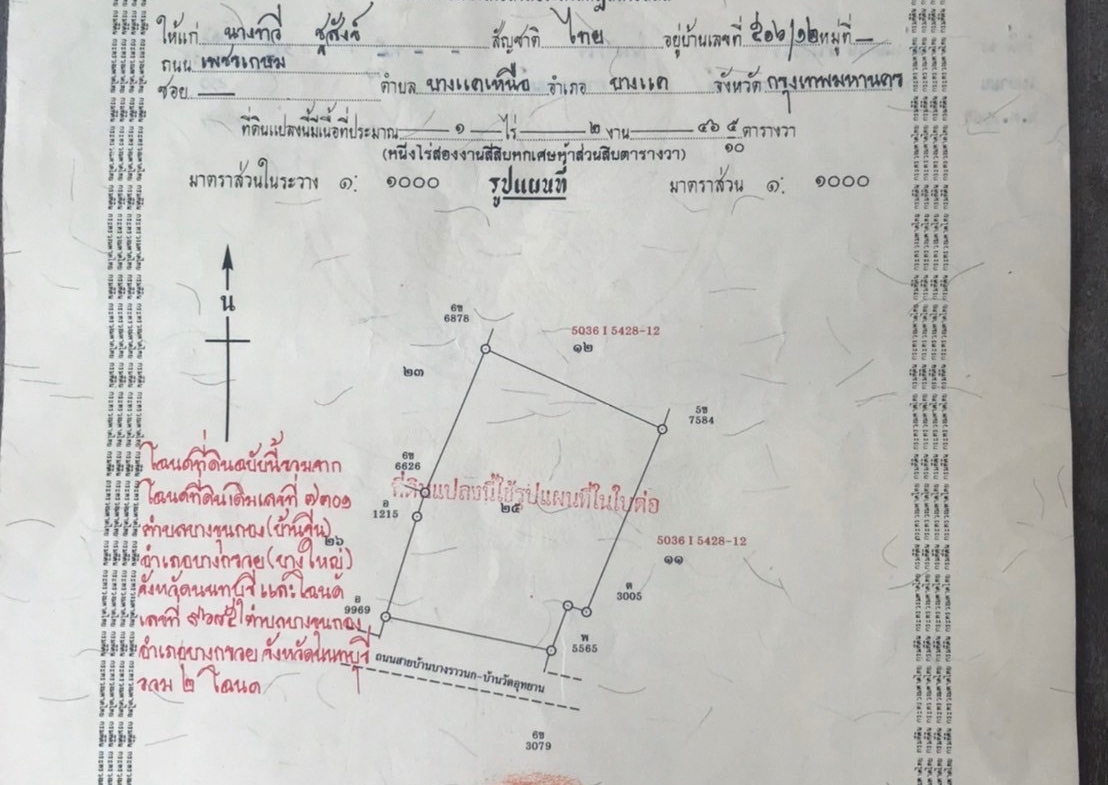 ให้แก่ นางทวี ชูสังข์ สัญชาติ ไทย อยู่บ้านเลขที่ ๕๑๖/๑๒ หมู่ที่ —
ถนน เพชรเกษม
ซอย — ตำบล บางแคเหนือ อำเภอ บางแค จังหวัด กรุงเทพมหานคร
ที่ดินแปลงนี้มีเนื้อที่ประมาณ ๑ ไร่ ๒ งาน ๔๖ ๕/๑๐ ตารางวา
(หนึ่งไร่สองงานสี่สิบหกเศษห้าส่วนสิบตารางวา)
มาตราส่วนในระวาง ๑: ๑๐๐๐ รูปแผนที่ มาตราส่วน ๑: ๑๐๐๐
น
6ข
6878
5036 I 5428-12
๑๒
๒๓
5ข
7584
6ข
6626
ที่ดินแปลงนี้ใช้รูปแผนที่ในใบต่อ
๒๕
อ
1215
๒๖
5036 I 5428-12
๑๑
ต
3005
อ
9969
พ
5565
ถนนสายบ้านบางราวนก-บ้านวัดอุทยาน
6ข
3079
โฉนดที่ดินฉบับนี้รวมจาก
โฉนดที่ดินเดิมเลขที่ ๗๓๐๑
ตำบลบางขุนกอง (บ้านจีน)
อำเภอบางกรวย (บางใหญ่)
จังหวัดนนทบุรี และโฉนด
เลขที่ ตำบลบางขุนกอง
อำเภอบางกรวย จังหวัดนนทบุรี
รวม ๒ โฉนด
กรมที่ดิน กระทรวงมหาดไทย